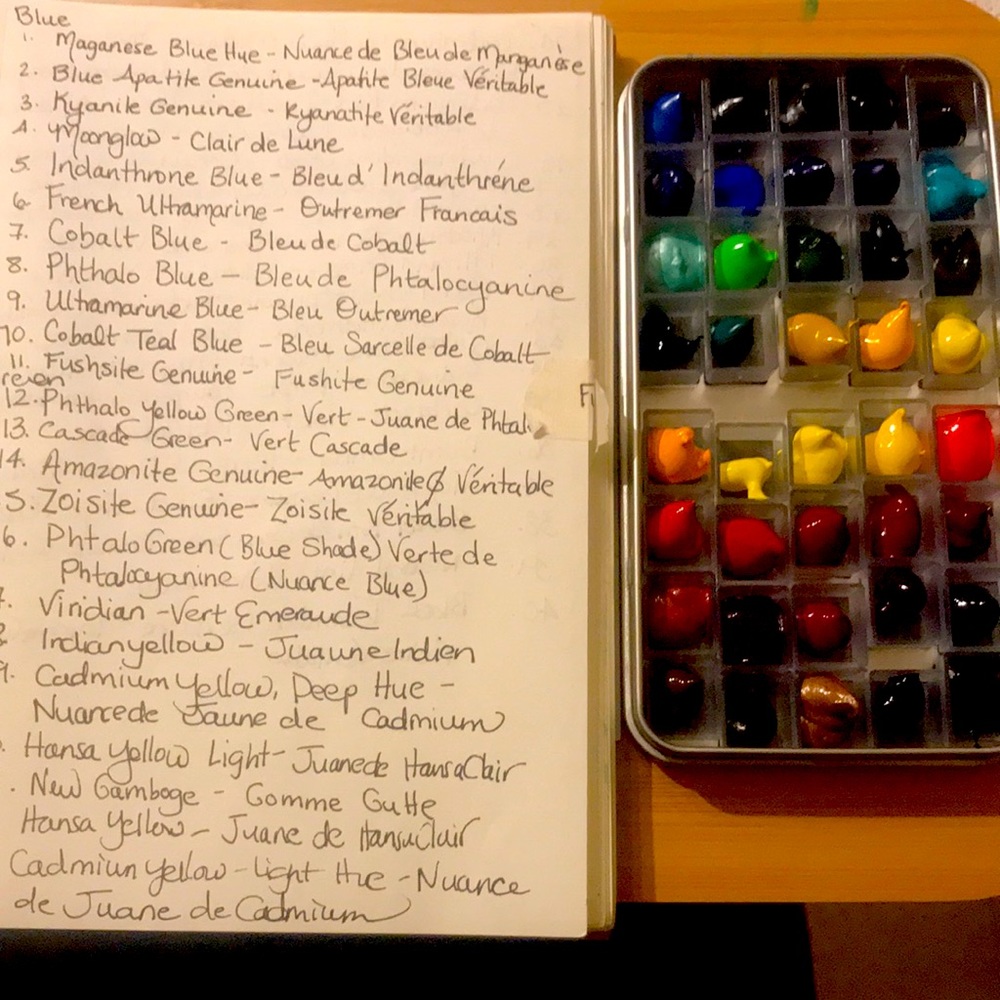 Blue
1. Maganese Blue Hue - Nuance de Bleu de Marganèse
2. Blue Apatite Genuine - Apatite Bleue Véritable
3. Kyanite Genuine - Kyanatite Véritable
4. Moonglow - Clair de Lune
5. Indanthrone Blue - Bleu d' Indanthréne
6. French Ultramarine - Outremer Francais
7. Cobalt Blue - Bleu de Cobalt
8. Phthalo Blue - Bleu de Phtalocyanine
9. Ultramarine Blue - Bleu Outremer
10. Cobalt Teal Blue - Bleu Sarcelle de Cobalt
11. Fushsite Genuine - Fushite Genuine
reien
12. Phthalo Yellow Green - Vert - Juane de Phtal
13. Cascade Green - Vert Cascade
14. Amazonite Genuine - Amazonite Véritable
5. Zoisite Genuine - Zoisite Véritable
6. Phtalo Green (Blue Shade) Verte de
Phtalocyanine (Nuance Blue)
7. Viridian - Vert Emeraude
8 Indian yellow - Juaune Indien
9. Cadmium Yellow, Deep Hue -
Nuance de Jaune de Cadmium
. Hansa Yellow Light - Juane de Hansa Clair
. New Gamboge - Gomme Gutte
Hansa Yellow - Juane de Hansa Clair
Cadmiun Yellow - Light Hue - Nuance
de Juane de Cadmium